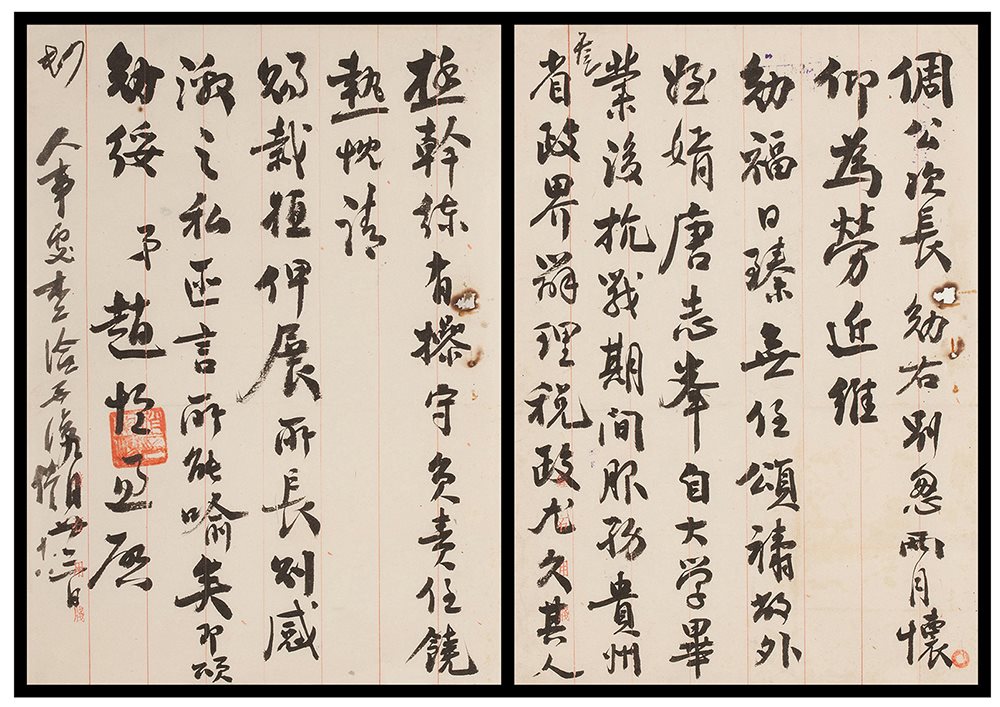 倜公次長勛右別忽兩月懷
仰為勞近維
勛福日臻無任頌禱敬啟外
姪婿唐志峯自大學畢
業後抗戰期間服務貴州
省政界辦理稅政尤久其人
極幹練有操守負責任饒
熱忱請
賜栽植俾展所長則感
激之私函言所能喻矣耑頌
勛綏 弟趙恆惕啟
人事處查洽